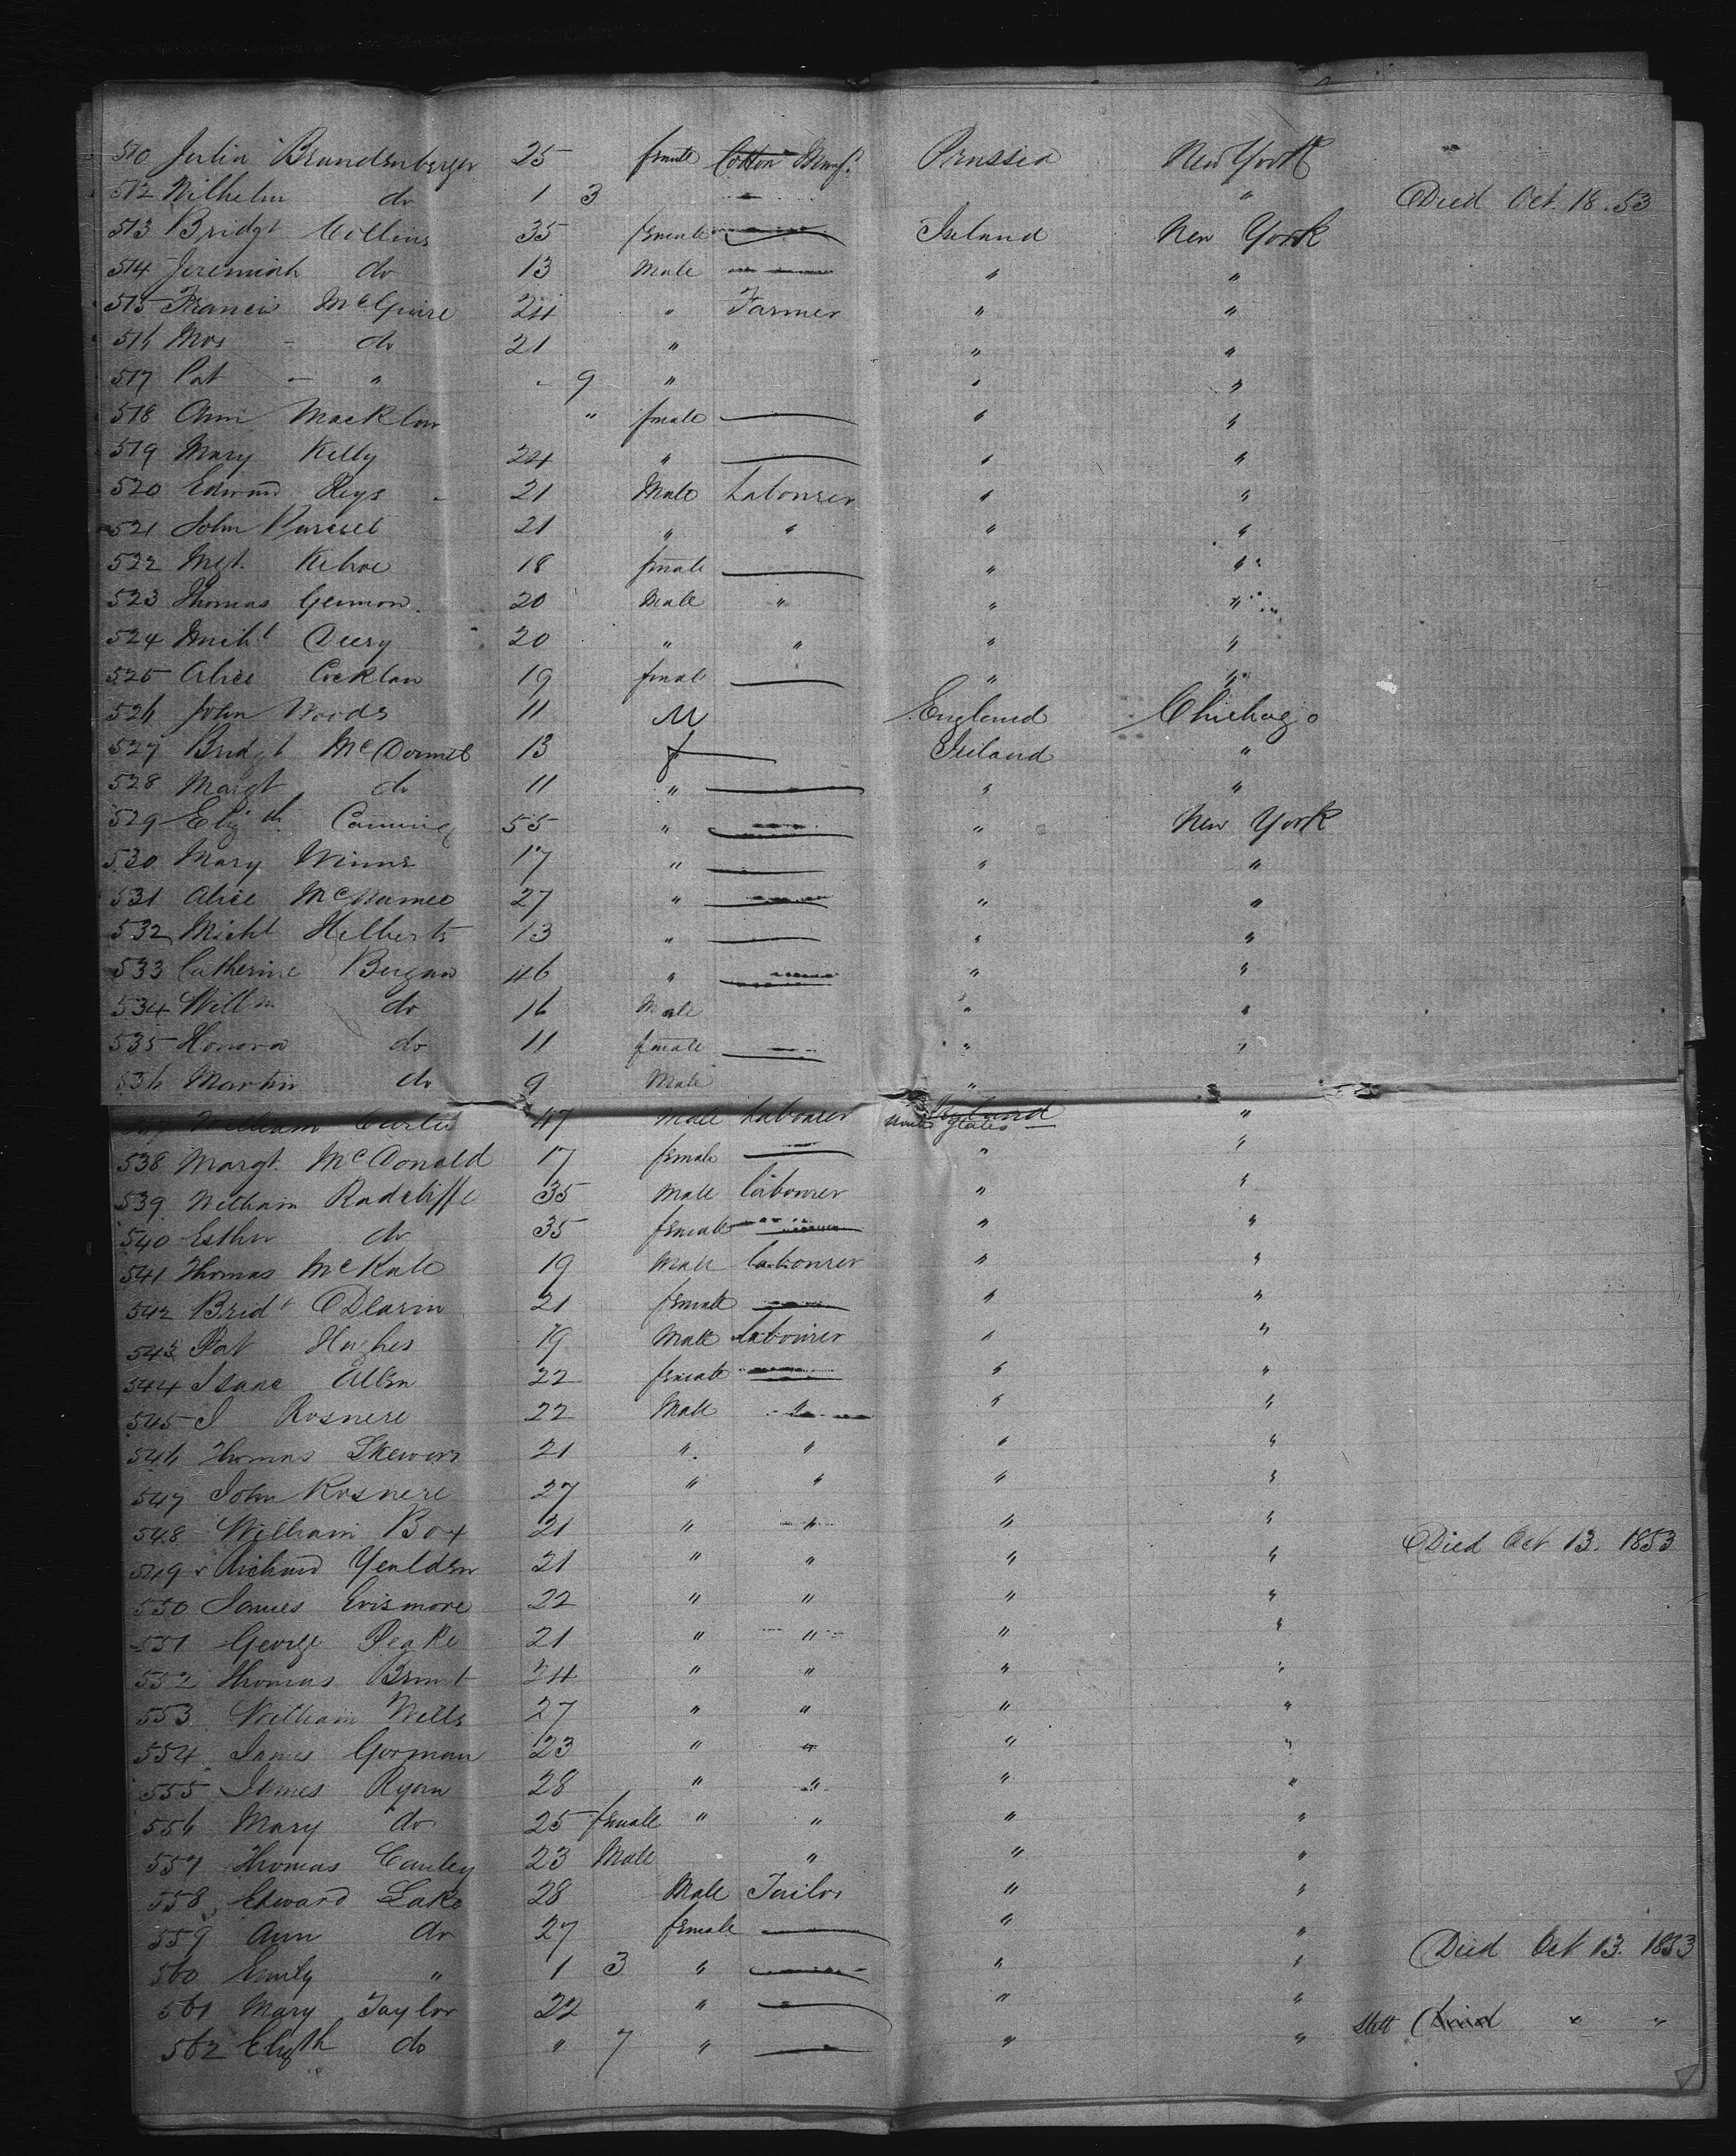 510 Julia Brandenberger 25 female Cotton Manuf. Prussia New York
512 Wilhelm do 1 3 " Died Oct. 18. 53
513 Bridgt Collins 35 female Ireland New York
514 Jeremiah do 13 Male " "
515 Francis McGuire 24 " Farmer " "
516 Mrs - do 21 " " "
517 Pat - " - 9 " " "
518 Ann Macklow " female " "
519 Mary Kelly 24 " " "
520 Edward Keys - 21 Male Labourer " "
521 John Purcell 21 " " " "
522 Mgt. Kehoe 18 female " "
523 Thomas Gennon. 20 Male " " "
524 Michl Deery 20 " " " "
525 Alice Cocklan 19 female " "
526 John Woods 11 M England Chichago
527 Bridgt McDermet 13 f Ireland "
528 Margt do 11 " " "
529 Elizth 55 " " New York
530 Mary Winns 17 " " "
531 Alice McNamee 27 " " "
532 Michl Helberts 13 " " "
533 Catherine Bergan 46 " " "
534 Willm do 16 Male " "
535 Honora do 11 female " "
536 Martin do 9 Male "
William 47 Male Labourer United States "
538 Margt. McDonald 17 female " "
539 William Radcliffe 35 Male labourer " "
540 Esther do 35 female " "
541 Thomas McKale 19 Male labourer " "
542 Bridt 21 female " "
543 Pat Hughes 19 Male Labourer " "
544 Isaac Allen 22 female " "
545 J Rosnere 22 Male " " "
546 Thomas Skewers 21 " " " "
547 John Rosnere 27 " " " "
548 William Box 21 " " " " Died Oct 13. 1853
549 Richard Yealden 21 " " " "
550 James Evismore 22 " " " "
551 George Peake 21 " " " "
552 Thomas Brent 24 " " " "
553 William Wills 27 " " " "
554 James Gorman 23 " " " "
555 James Ryan 28 " " " "
556 Mary do 25 female " " " "
557 Thomas Cauley 23 Male " " "
558 Edward Lake 28 Male Tailor " "
559 Ann do 27 female " "
560 Emily " 1 3 " " " Died Oct 13. 1853
561 Mary Taylor 22 " " "
562 Elizth do " 7 " " " Stett Died " "